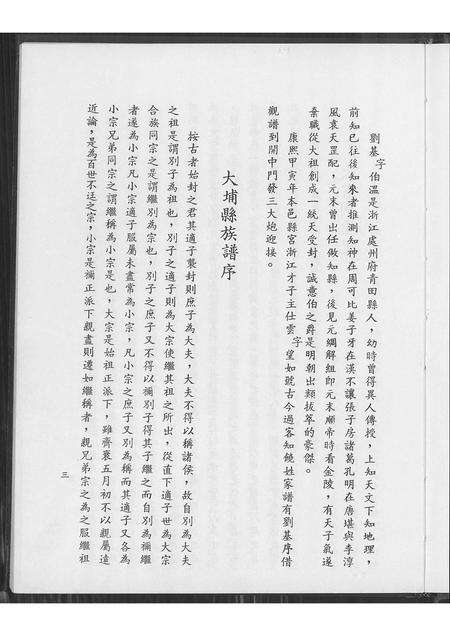 劉基字伯溫是浙江處州府青田縣人，幼時曾得異人傳授，上知天文下知地理，
前知已往後知來者推測知神在周可比姜子牙在漢不讓張子房諸葛孔明在唐堪與李淳
風袁天罡配，元末曾出任做知縣，後見元綱解紐即元末順帝時看金陵，有天子氣遂
棄職從大祖創成一統天受封，誠意伯之爵是明朝出類拔萃的豪傑。
康熙甲寅年本邑縣宮浙江才子主仕雲字望如號古今過客知饒姓家譜有劉基序借
觀譜到開中門發三大炮迎接。
大埔縣族譜序
按古者始封之君其適子襲封則庶子為大夫，大夫不得以稱諸侯，故自別為大夫
之祖是謂別子為祖也，別子之適子則為大宗使繼其祖之所出，從直下適子世為大宗
合族同宗之是謂繼別為宗也，別子之庶子又不得以禰別子得其子繼之而自別為禰繼
者遂為小宗凡小宗適子服屬未盡常為小宗，凡小宗之庶子又別為稱而其適子又各為
小宗兄弟同宗之謂繼稱為小宗是也，大宗是始祖正派下，雖齊衰五月初不以親屬遠
近論，是為百世不迁之宗，小宗是禰正派下親盡則遷如繼稱者，親兄弟宗之為之服繼祖
三